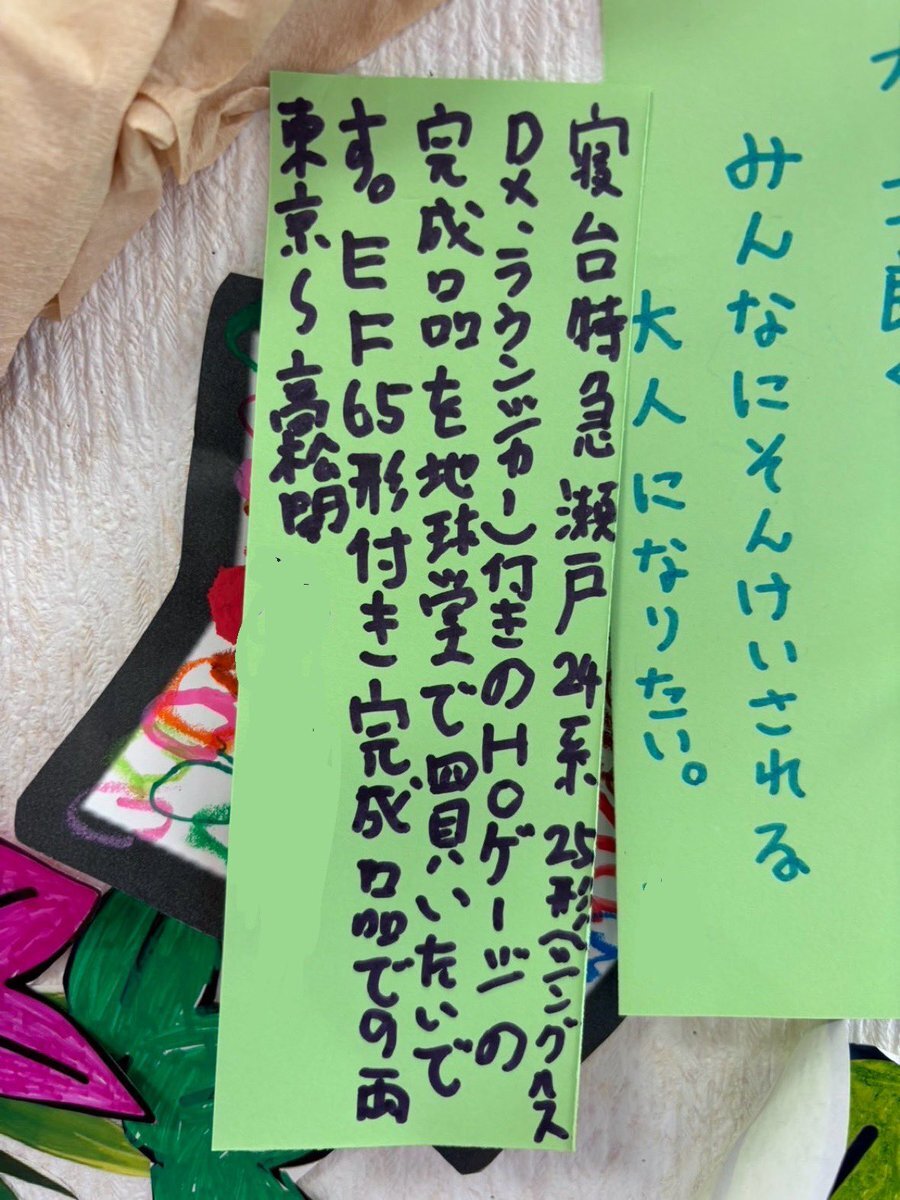 みんなにそんけいされる
大人になりたい。
寝台特急瀬戸24系25形(シングルス
DX、ラウンジカー)付きのHOゲージの
完成品を地球堂で買いたいで
す。EF65形付き完成品での両
東京〜高松明